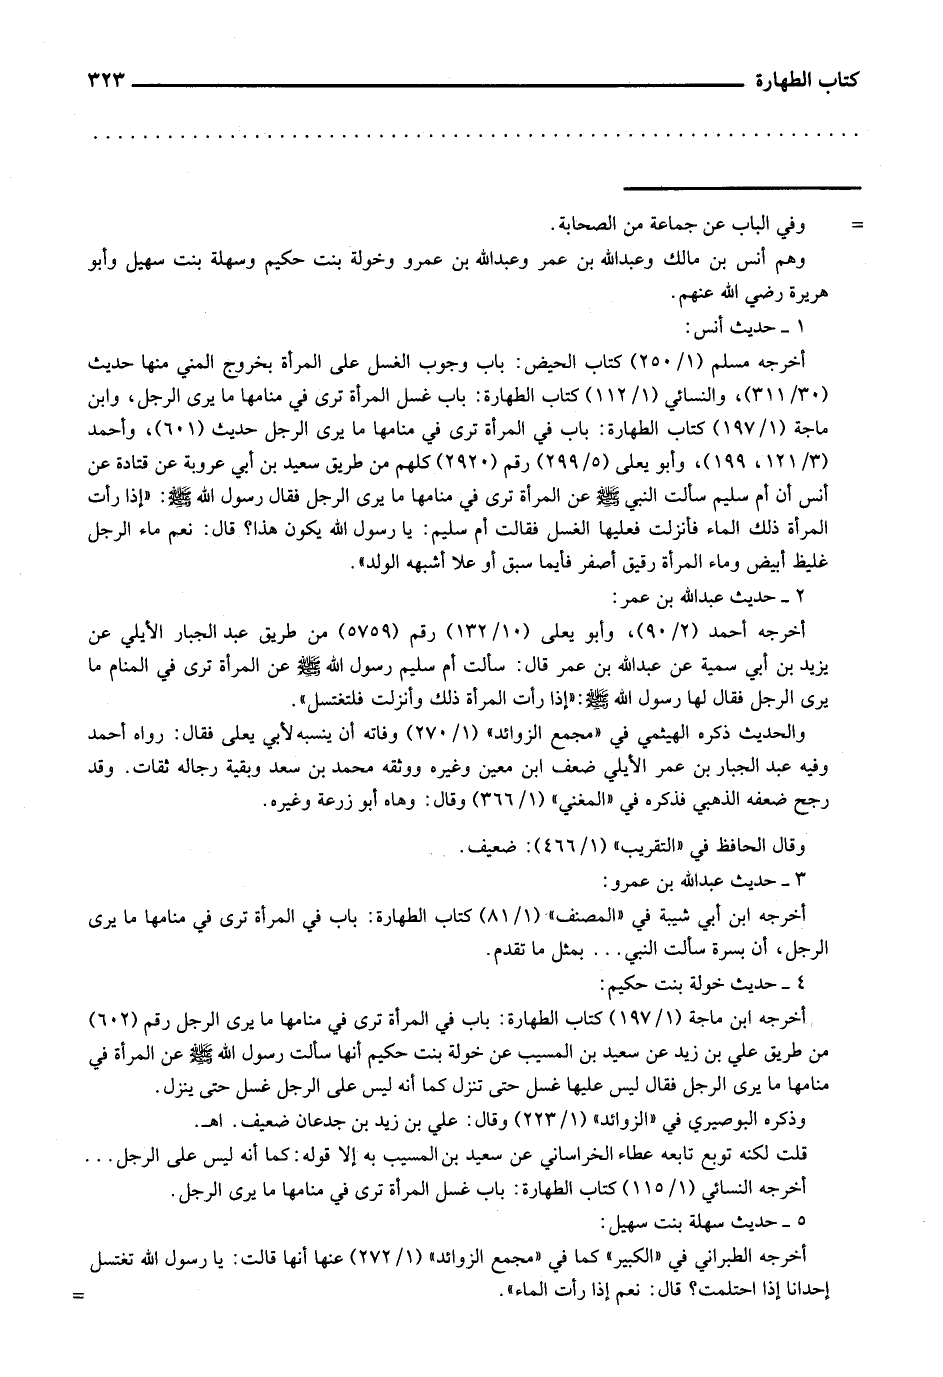 كتاب الطهارة ٣٢٣
. . . . . . . . . . . . . . . . . . . . . . . . . . . . . . . . . . . . . . . . . . . . . . . . . . . . . . . . . . . . . .
= وفي الباب عن جماعة من الصحابة.
وهم أنس بن مالك وعبدالله بن عمر وعبدالله بن عمرو وخولة بنت حكيم وسهلة بنت سهيل وأبو
هريرة رضي الله عنهم.
١ ـ حديث أنس:
أخرجه مسلم (١/ ٢٥٠) كتاب الحيض: باب وجوب الغسل على المرأة بخروج المني منها حديث
(٣٠/ ٣١١)، والنسائي (١/ ١١٢) كتاب الطهارة: باب غسل المرأة ترى في منامها ما يرى الرجل، وابن
ماجة (١/ ١٩٧) كتاب الطهارة: باب في المرأة ترى في منامها ما يرى الرجل حديث (٦٠١)، وأحمد
(٣/ ١٢١، ١٩٩)، وأبو يعلى (٥/ ٢٩٩) رقم (٢٩٢٠) كلهم من طريق سعيد بن أبي عروبة عن قتادة عن
أنس أن أم سليم سألت النبي ﷺ عن المرأة ترى في منامها ما يرى الرجل فقال رسول الله ﷺ: «إذا رأت
المرأة ذلك الماء فأنزلت فعليها الغسل فقالت أم سليم: يا رسول الله يكون هذا؟ قال: نعم ماء الرجل
غليظ أبيض وماء المرأة رقيق أصفر فأيما سبق أو علا أشبهه الولد».
٢ ـ حديث عبدالله بن عمر:
أخرجه أحمد (٢/ ٩٠)، وأبو يعلى (١٠/ ١٣٢) رقم (٥٧٥٩) من طريق عبد الجبار الأيلي عن
يزيد بن أبي سمية عن عبدالله بن عمر قال: سألت أم سليم رسول الله ﷺ عن المرأة ترى في المنام ما
يرى الرجل فقال لها رسول الله ﷺ: «إذا رأت المرأة ذلك وأنزلت فلتغتسل».
والحديث ذكره الهيثمي في «مجمع الزوائد» (١/ ٢٧٠) وفاته أن ينسبه لأبي يعلى فقال: رواه أحمد
وفيه عبد الجبار بن عمر الأيلي ضعف ابن معين وغيره ووثقه محمد بن سعد وبقية رجاله ثقات. وقد
رجح ضعفه الذهبي فذكره في «المغني» (١/ ٣٦٦) وقال: وهاه أبو زرعة وغيره.
وقال الحافظ في «التقريب» (١/ ٤٦٦): ضعيف.
٣ ـ حديث عبدالله بن عمرو:
أخرجه ابن أبي شيبة في «المصنف» (١/ ٨١) كتاب الطهارة: باب في المرأة ترى في منامها ما يرى
الرجل، أن بسرة سألت النبي... بمثل ما تقدم.
٤ ـ حديث خولة بنت حكيم:
أخرجه ابن ماجة (١/ ١٩٧) كتاب الطهارة: باب في المرأة ترى في منامها ما يرى الرجل رقم (٦٠٢)
من طريق علي بن زيد عن سعيد بن المسيب عن خولة بنت حكيم أنها سألت رسول الله ﷺ عن المرأة في
منامها ما يرى الرجل فقال ليس عليها غسل حتى تنزل كما أنه ليس على الرجل غسل حتى ينزل.
وذكره البوصيري في «الزوائد» (١/ ٢٢٣) وقال: علي بن زيد بن جدعان ضعيف. اهـ.
قلت لكنه توبع تابعه عطاء الخراساني عن سعيد بن المسيب به إلا قوله: كما أنه ليس على الرجل...
أخرجه النسائي (١/ ١١٥) كتاب الطهارة: باب غسل المرأة ترى في منامها ما يرى الرجل.
٥ ـ حديث سهلة بنت سهيل:
أخرجه الطبراني في «الكبير» كما في «مجمع الزوائد» (١/ ٢٧٢) عنها أنها قالت: يا رسول الله تغتسل
إحدانا إذا احتلمت؟ قال: نعم إذا رأت الماء». =